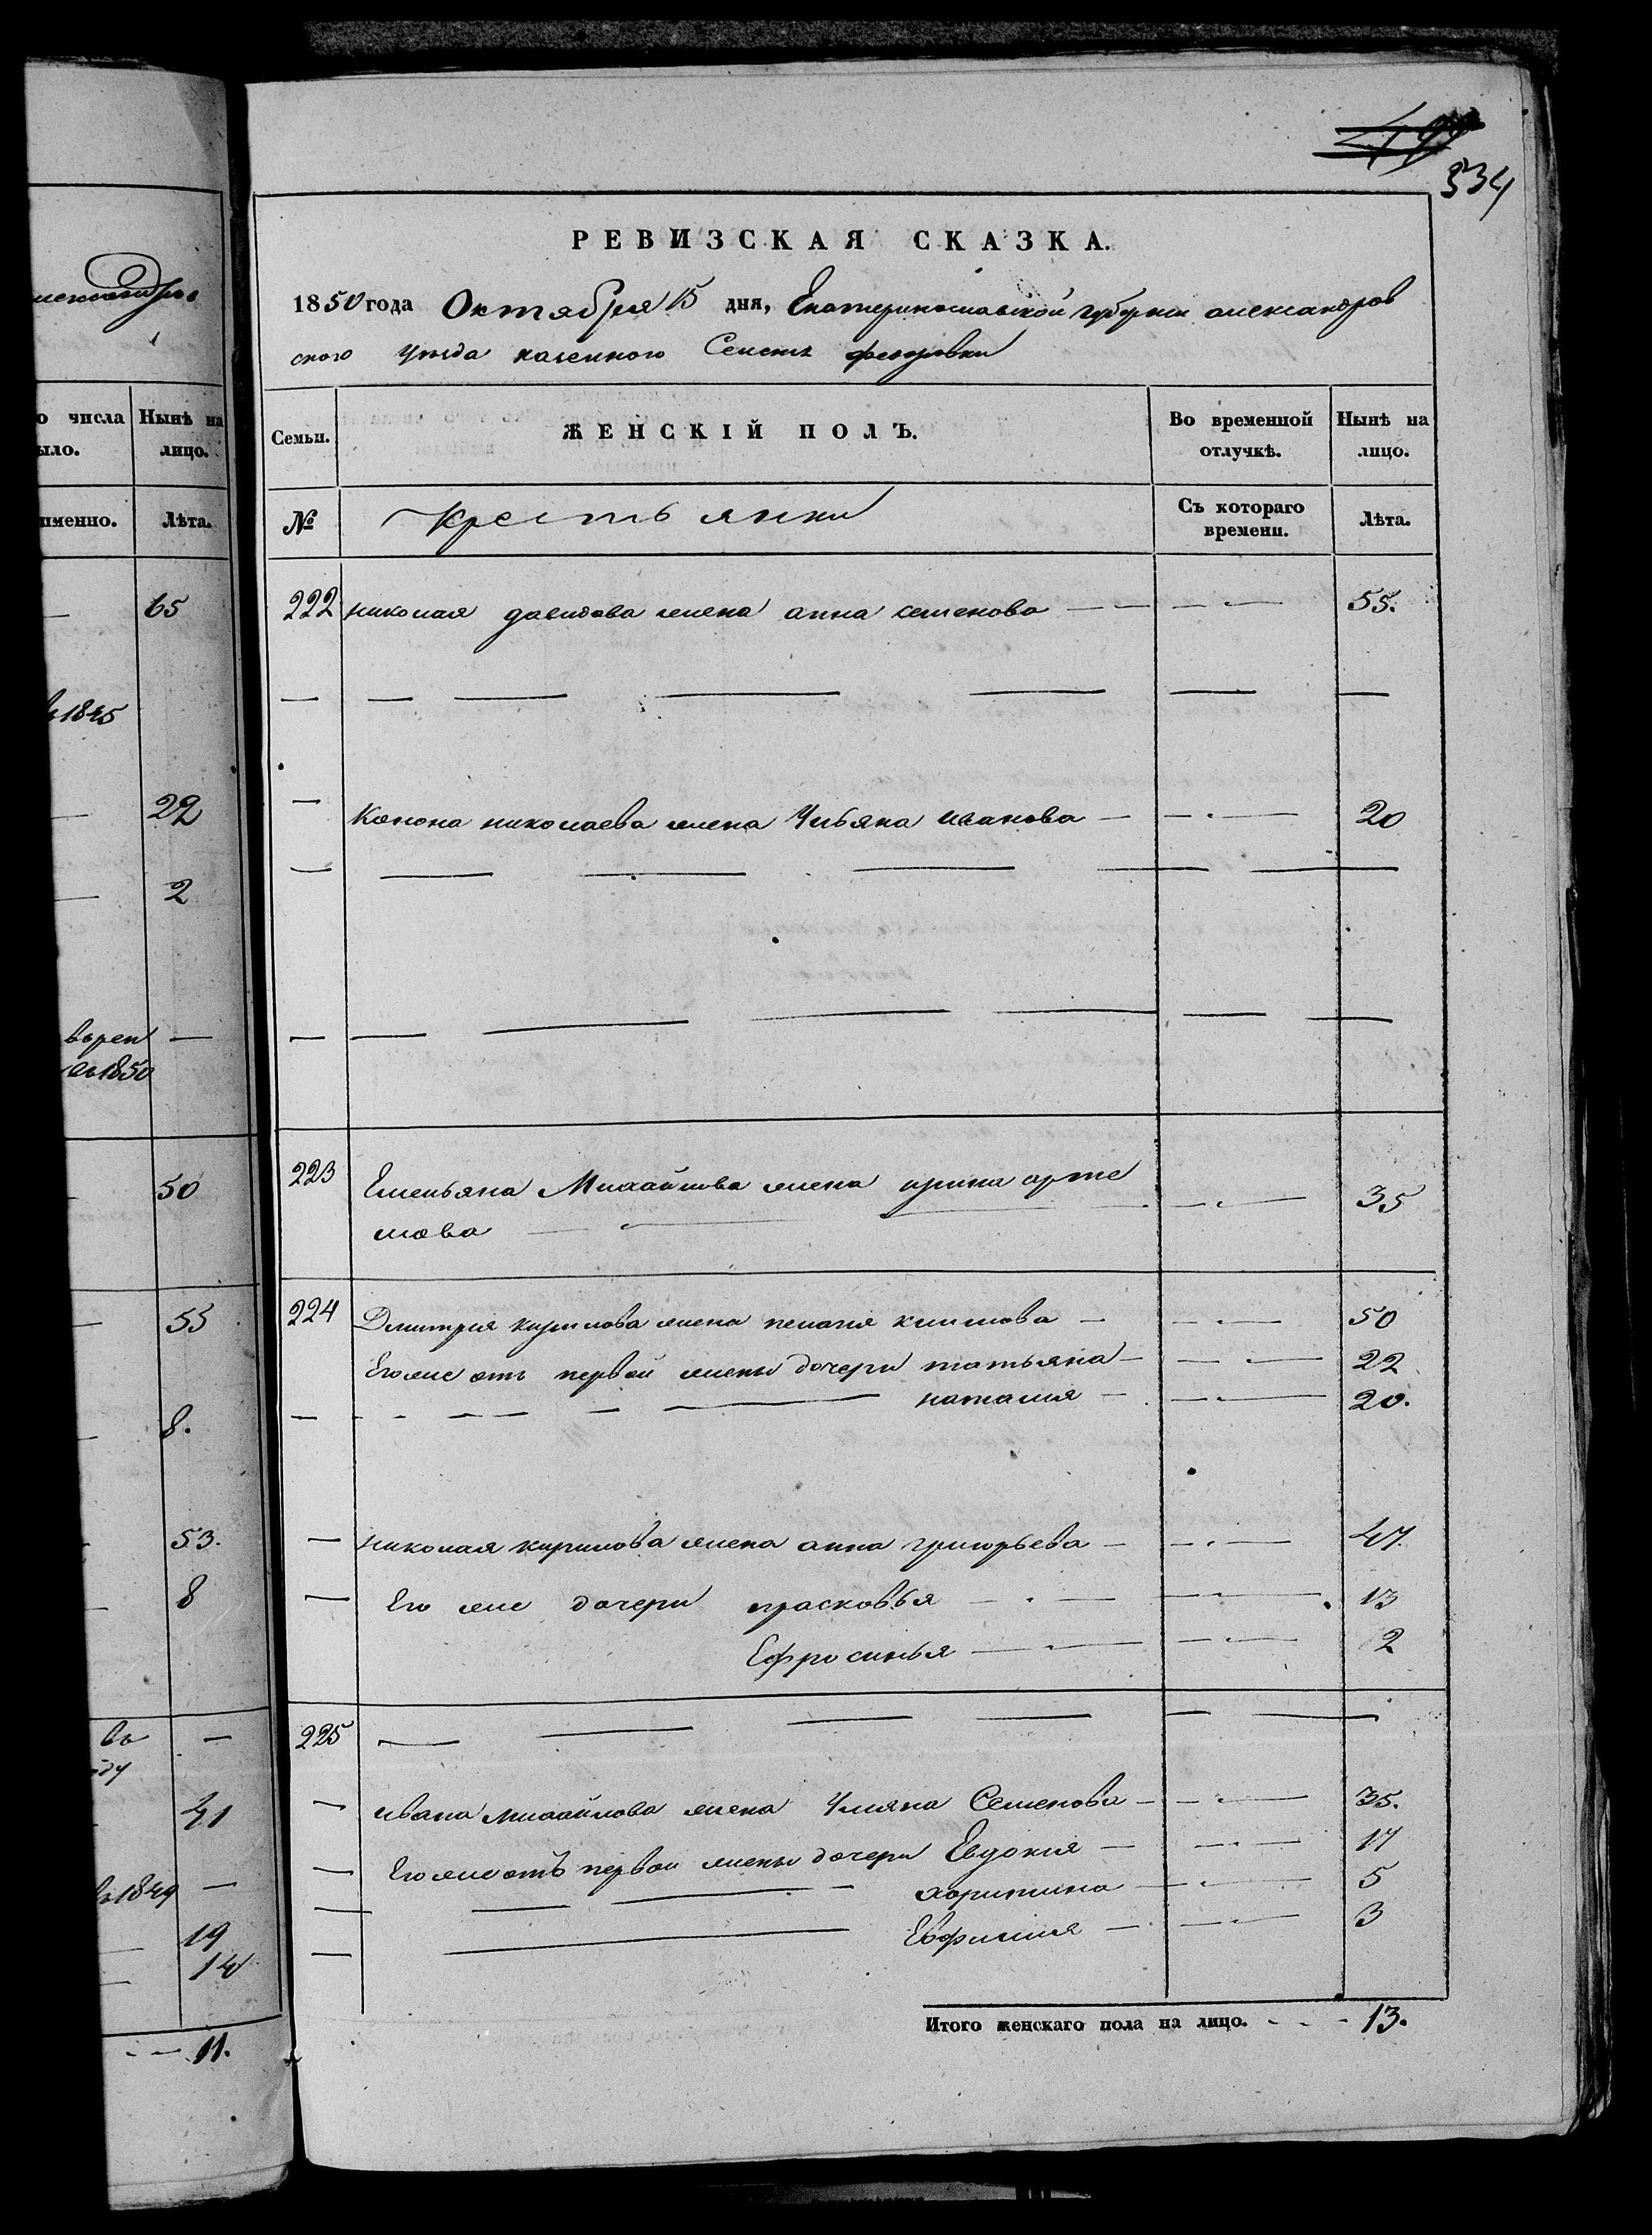 александров
о числа
было.
Нынѣ на
лицо.
именно.
Лѣта.
65
1845
22
2
—
1850
50
55
8.
53.
8
въ —
41
въ 1849 —
19
14
11.
334
РЕВИЗСКАЯ СКАЗКА.
1850 года Октября 15 дня, Екатеринославской губернии александров
ского уезда казенного Селенія федоровки
Семьи.
ЖЕНСКІЙ ПОЛЪ.
Во временной
отлучкѣ.
Нынѣ на
лицо.
№
Крестьянки
Съ котораго
времени.
Лѣта.
222 николая давидова жена анна семенова — — 55.
— Конона николаева жена Ульяна иванова — — 20
223 Емельяна Михайлова жена ирина арте
мова — — 35
224 Дмитрия кирилова жена пелагия климова — — 50
Его же отъ первой жены дочери татьяна — — 22
наталия — — 20.
— николая кирилова жена анна григорьева — — 47.
— Его же дочери прасковья — — 13
Ефросинья — — 2
225 —
— ивана михайлова жена Улияна Семенова — — 35.
— Его же отъ первои жены дочери Евдокия — — 17
— харитина — — 5
— Евфимия — — 3
Итого женскаго пола на лицо. - - - 13.